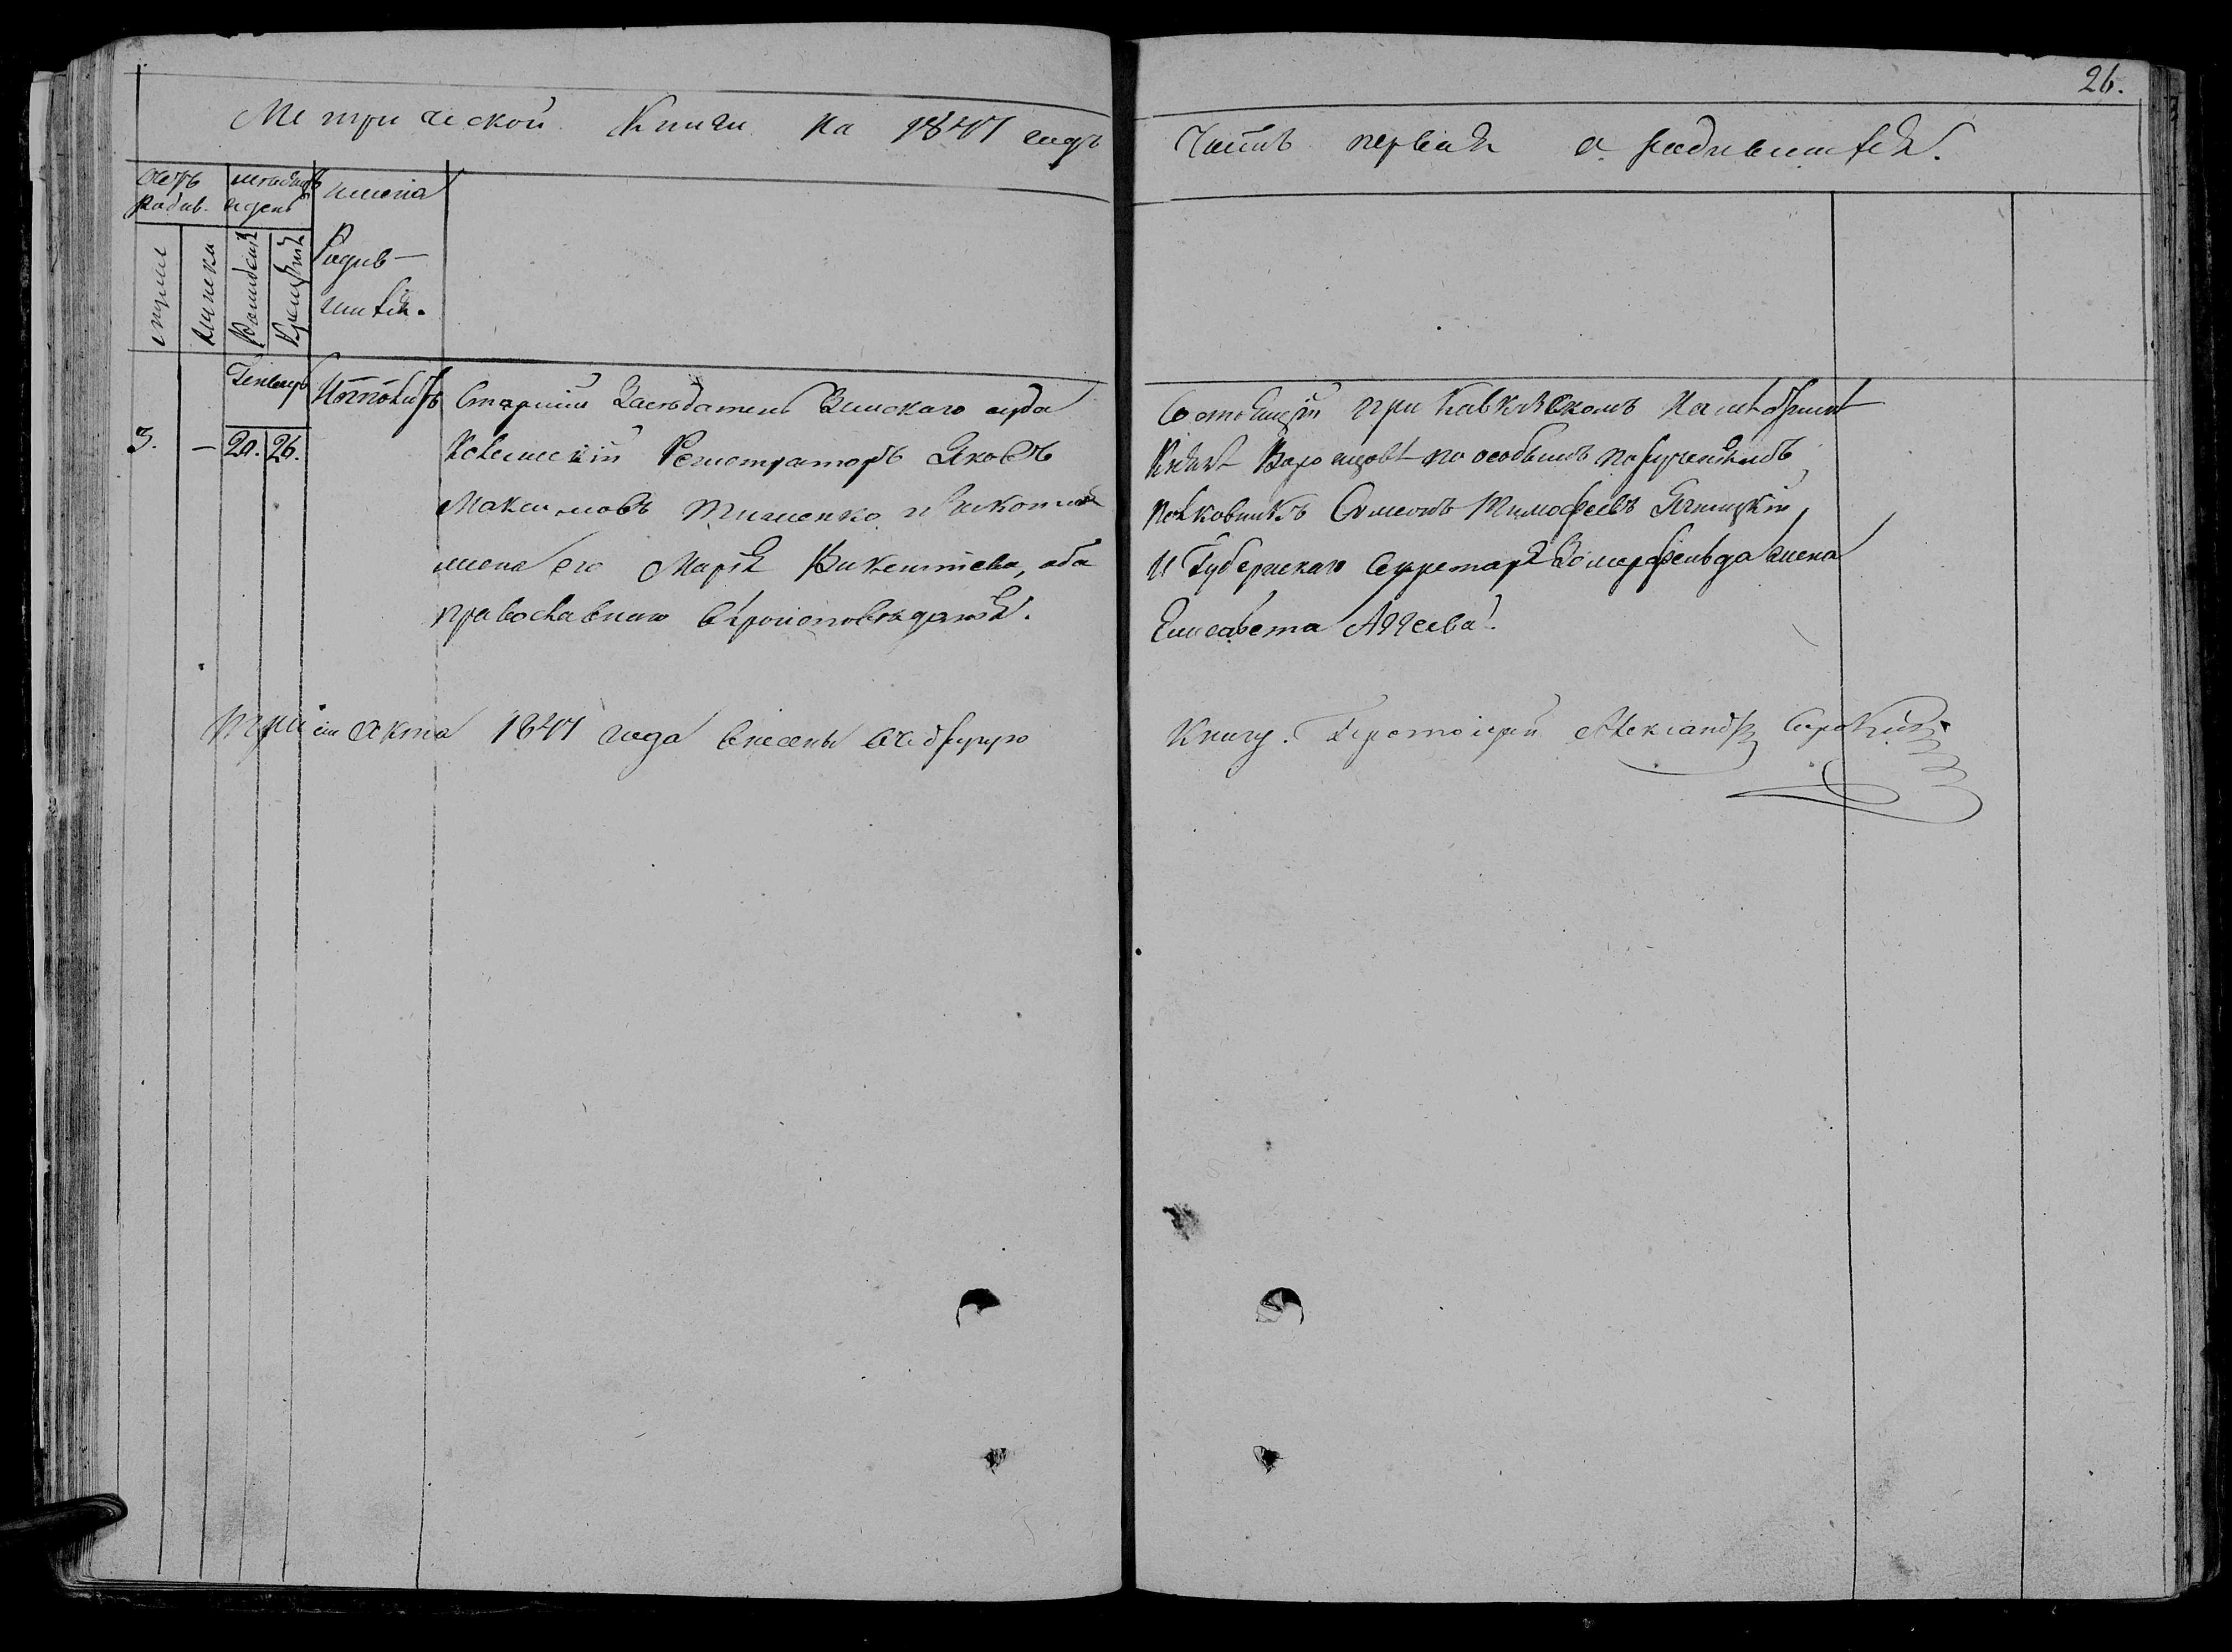 26.
Метрической Книги на 1847 годъ
Часть первая о родившихся.
счетъ родив.
мѣсяцъ и день
имена Родив-
шихся.
мужеска
женска
Рожденія
Крещенія
Генварь
3. — 20. 26.
Ипполитъ
Старшій Засѣдатель Земскаго суда
Колежскій Регистраторъ Яковъ
Максимовъ Тищенко и законная
жена его Марія Викентіева, оба
православнаго вѣроисповѣданія.
Состоящій при Кавказскомъ Намѣстникѣ
Князѣ Воронцовѣ по особымъ порученіямъ
полковникъ Симеонъ Тимофеевъ
и Губернскаго Секретаря Зомерфельда жена
Елисавета Андреева.
Три сіи акта 1847 года внесены въ
Книгу. Протоіерей Александръ